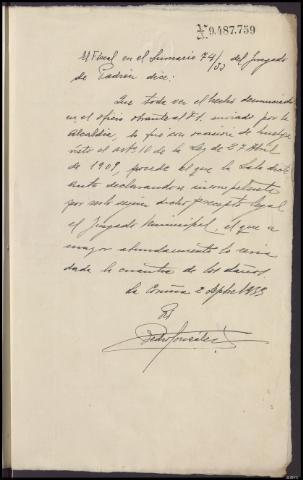 Nº 9.487.759
El Fiscal en el Sumario 74/33 del Juzgado
de Padrón dice:
Que toda vez el hecho denunciado
en el oficio obrante al fº 1. enviado por la
Alcaldía, lo fué con ocasión de huelga
visto el artº 10 de la Ley de 27 Abril
de 1909, procede el que la Sala dicte
auto declarandose incompetente
por serlo según dicho precepto legal
el Juzgado Municipal, el que a
mayor abundamiento lo seria
dada la cuantia de los daños.
La Coruña 2 Sptbre 1933
Pedro González